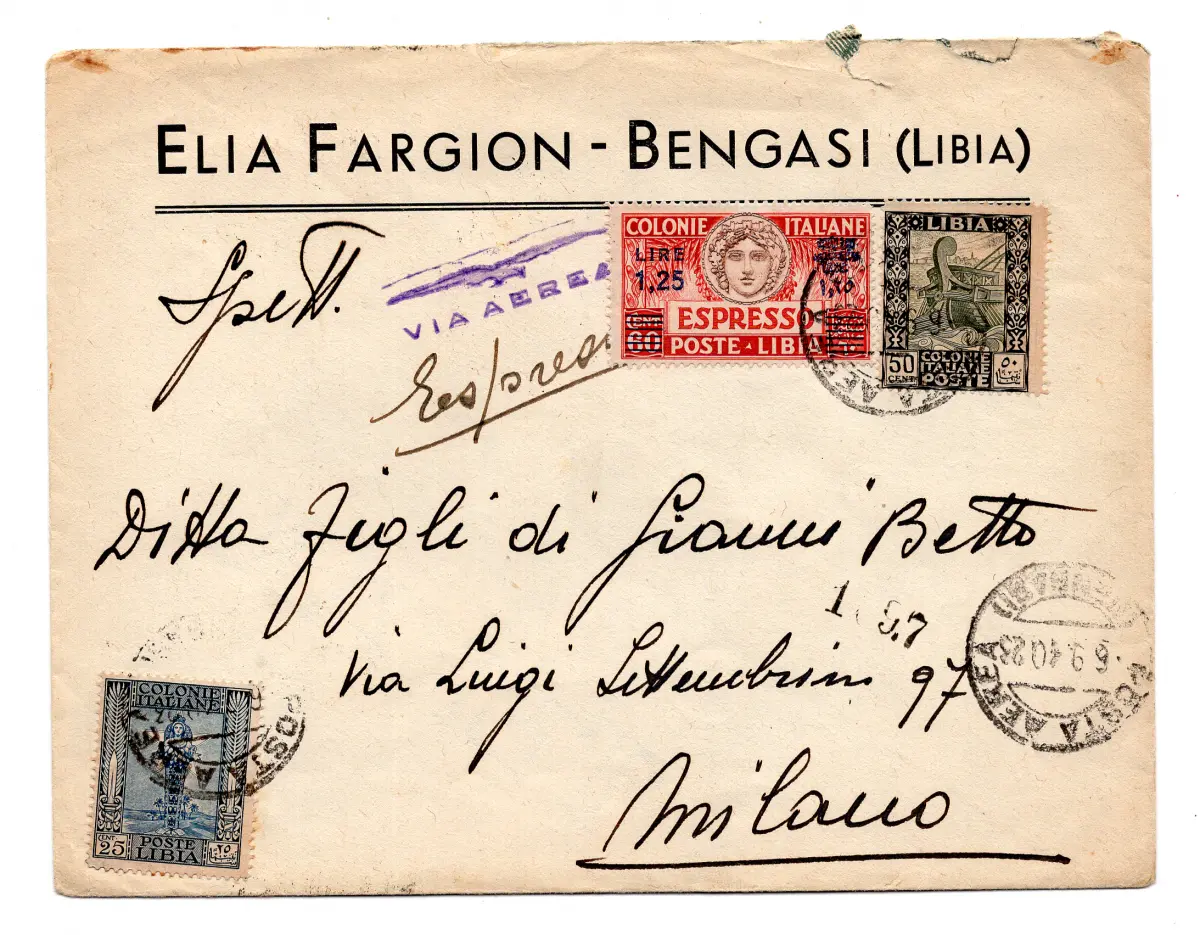 ELIA FARGION - BENGASI (LIBIA)
Spett.
VIA AEREA
Espresso
COLONIE ITALIANE
LIRE
1,25
١,٢٥
CENT
60
ESPRESSO
POSTE LIBIA
LIBIA
50
CENT
COLONIE
ITALIANE
POSTE
٥٠
Ditta Figli di Gianni Betto
Via Luigi Settembrini 97
Milano
POSTA AEREA
6.9.40
COLONIE
ITALIANE
CENT
25
POSTE
LIBIA
٢٥
POSTA AEREA